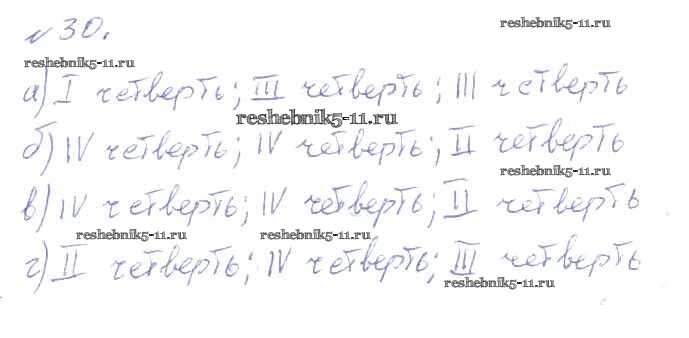 reshebnik5-11.ru
№30.
reshebnik5-11.ru
а) I четверть; III четверть; III четверть
reshebnik5-11.ru
б) IV четверть; IV четверть; II четверть
reshebnik5-11.ru
в) IV четверть; IV четверть; II четверть
reshebnik5-11.ru reshebnik5-11.ru
г) II четверть; IV четверть; III четверть
reshebnik5-11.ru